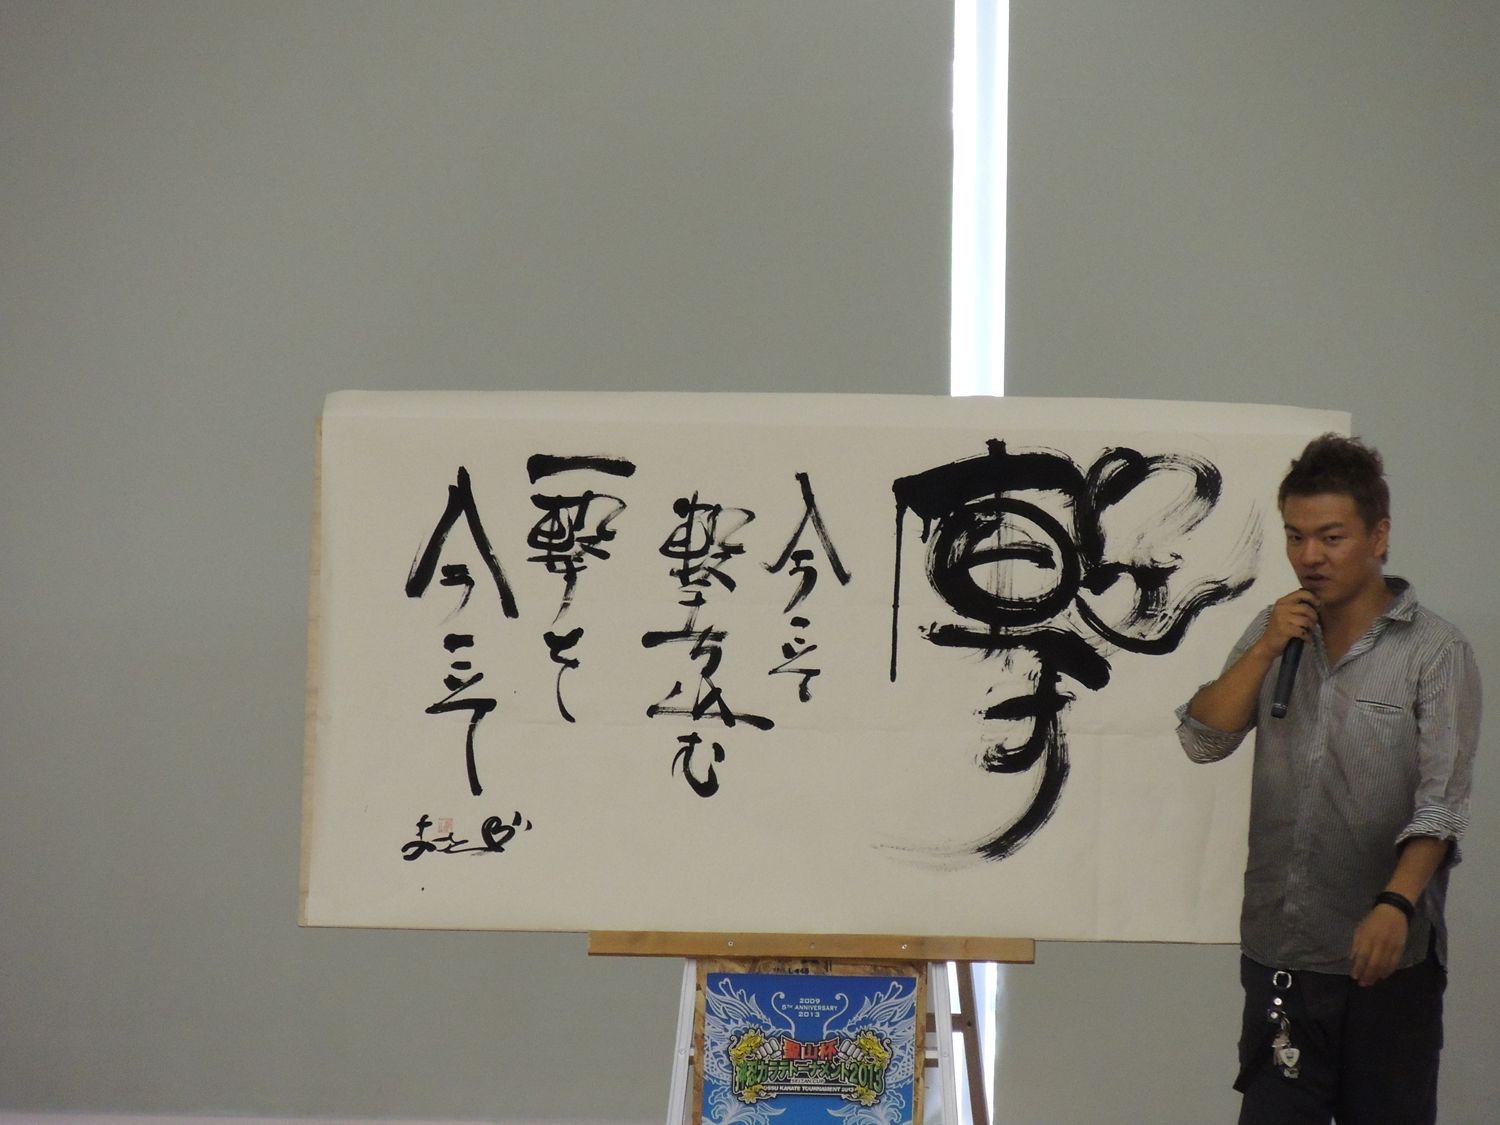 撃
今
撃ち込む
一撃を
今
2009
5TH ANNIVERSARY
2013
聖山杯
押忍カラテトーナメント2013
OSSU KARATE TOURNAMENT 2013